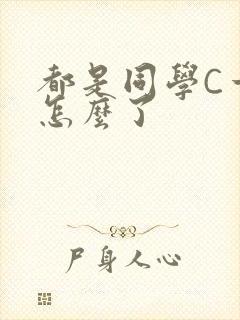 都是同學C
怎麼了
尸身人心